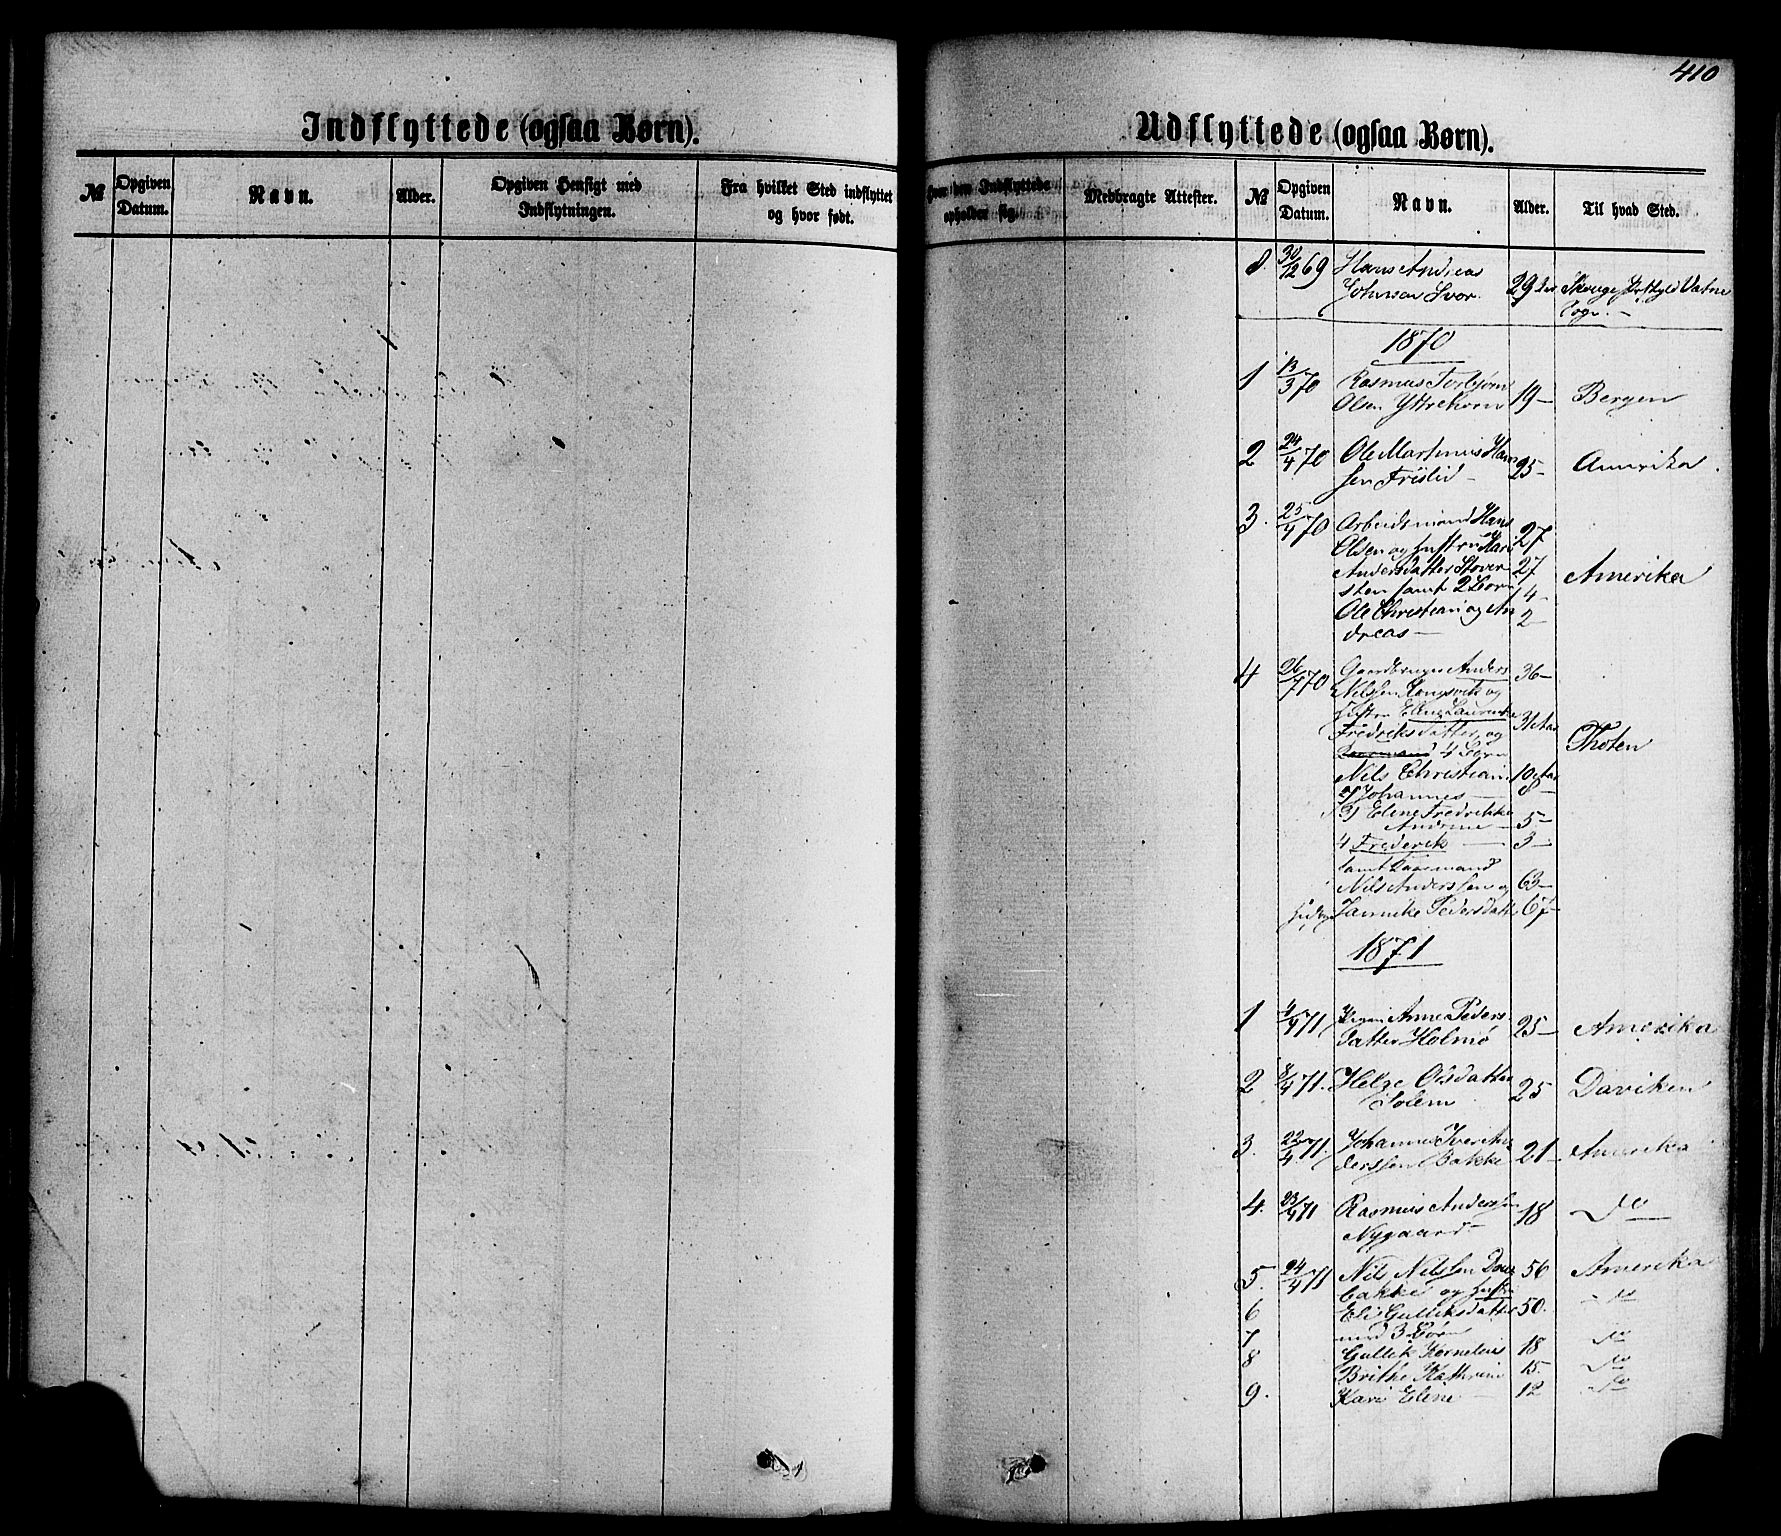 410
Indflyttede (ogsaa Børn).
№ Opgiven Datum. Navn. Alder. Opgiven Hensigt med Indflytningen. Fra hvilket Sted indflyttet og hvor født.
Udflyttede (ogsaa Børn).
Hvor den Indflyttede opholder sig. Medbragte Attester. № Opgiven Datum. Navn. Alder. Til hvad Sted.
8. 30/12 69 Hans Andreas
Johnsen 29 Skouge Vatne
Sogn.
1870
1 13/3 70 Rasmus Torbjørn
Olsen Yttrehorn 19 – Bergen
2 24/4 70 Ole Martinus Han
sen Frislid – 25 – Amerika
3. 25/4 70 Arbeidsmand Hans 27
Olsen og hustru Kari
Andersdatter Stover 27 Amerika
sten samt 2 Børn 4 –
Ole Christian og An 2 –
dreas –
4 26/7 70 Gaardbruger Anders 36 –
Nilsen og
Hustru Eline Laurentze
Fredriksdatter, og Thoten
4 Børn
Nils Christian 10 Aar
2) Johannes – 8 –
3) Eline Fredrikke
Andrine – 5 –
4 Frederik – 3 –
samt Kaarmand
Nils Anderssen og 63 –
Jannike Pedersdatt 67 –
1871
1 1/4 71 Pigen Anne Peders
datter Holmø 25 – Amerika
2 8/4 71. Helge Olsdatter
Solem 25 Daviken
3. 22/4 71. Johannes Iver An
derssen Bakke 21 – Amerika
4. 23/4 71 Rasmus Anderssen 18 do
Nygaard –
5. 24/4 71 Nils Nilssen 56 Amerika
bakke og hustru
6 Eli Gulliksdatter 50. do
med 3 Børn
7 Gullik Kornelius 18 do
8 Brithe Kathrine 15. do
9. Kari Eline – 12 do